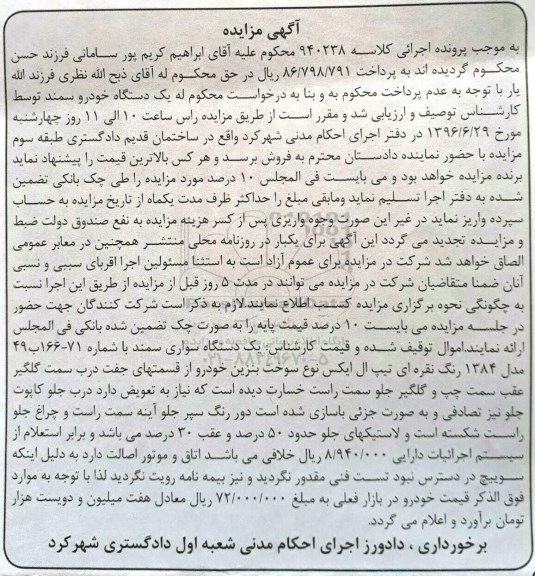 آگهی مزایده
به موجب پرونده اجرائی کلاسه ۹۴۰۲۳۸ محکوم علیه آقای ابراهیم کریم پور سامانی فرزند حسن
محکوم گردیده اند به پرداخت ۸۶/۷۹۸/۷۹۱ ریال در حق محکوم له آقای ذبح الله نظری فرزند الله
یار با توجه به عدم پرداخت محکوم به و بنا به درخواست محکوم له یک دستگاه خودرو سمند توسط
کارشناس توصیف و ارزیابی شد و مقرر است از طریق مزایده راس ساعت ۱۰ الی ۱۱ روز چهارشنبه
مورخ ۱۳۹۶/۶/۲۹ در دفتر اجرای احکام مدنی شهرکرد واقع در ساختمان قدیم دادگستری طبقه سوم
مزایده با حضور نماینده دادستان محترم به فروش برسد و هر کس بالاترین قیمت را پیشنهاد نماید
برنده مزایده خواهد بود و می بایست فی المجلس ۱۰ درصد مورد مزایده را طی چک بانکی تضمین
شده به دفتر اجرا تسلیم نماید ومابقی مبلغ را حداکثر ظرف مدت یکماه از تاریخ مزایده به حساب
سپرده واریز نماید در غیر این صورت وجوه واریزی پس از کسر هزینه مزایده به نفع صندوق دولت ضبط
و مزایده تجدید می گردد این آگهی برای یکبار در روزنامه محلی منتشر همچنین در معابر عمومی
الصاق خواهد شد شرکت در مزایده برای عموم آزاد است به استثنا مسئولین اجرا اقربای سببی و نسبی
آنان ضمنا متقاضیان شرکت در مزایده می توانند در مدت ۵ روز قبل از مزایده از طریق این اجرا نسبت
به چگونگی نحوه برگزاری مزایده کسب اطلاع نمایند.لازم به ذکر است شرکت کنندگان جهت حضور
در جلسه مزایده می بایست ۱۰ درصد قیمت پایه را به صورت چک تضمین شده بانکی فی المجلس
ارائه نمایند.اموال توقیف شده و قیمت کارشناس: یک دستگاه سواری سمند با شماره ۷۱-۱۶۶ب۴۹
مدل ۱۳۸۴ رنگ نقره ای تیپ ال ایکس نوع سوخت بنزین خودرو از قسمتهای جفت درب سمت گلگیر
عقب سمت چپ و گلگیر جلو سمت راست خسارت دیده است که نیاز به تعویض دارد درب جلو کاپوت
جلو نیز تصادفی و به صورت جزئی باسازی شده است دور رنگ سپر جلو آینه سمت راست و چراغ جلو
راست شکسته است و لاستیکهای جلو حدود ۵۰ درصد و عقب ۳۰ درصد می باشد و برابر استعلام از
سیستم اجرائیات دارایی ۸/۹۴۰/۰۰۰ ریال خلافی می باشد اتاق و موتور اصالت دارد به دلیل اینکه
سوییچ در دسترس نبود تست فنی مقدور نگردید و نیز بیمه نامه رویت نگردید لذا با توجه به موارد
فوق الذکر قیمت خودرو در بازار فعلی به مبلغ ۷۲/۰۰۰/۰۰۰ ریال معادل هفت میلیون و دویست هزار
تومان برآورد و اعلام می گردد.
برخورداری ، دادورز اجرای احکام مدنی شعبه اول دادگستری شهرکرد